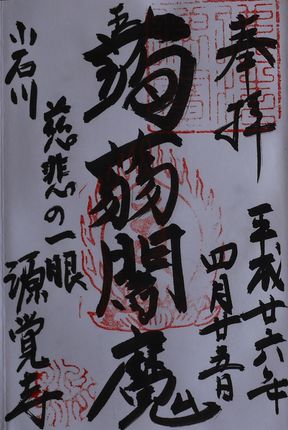 奉拝
平成廿六年
四月廿五日
蒟蒻閻魔
小石川
慈悲の一眼
源覚寺